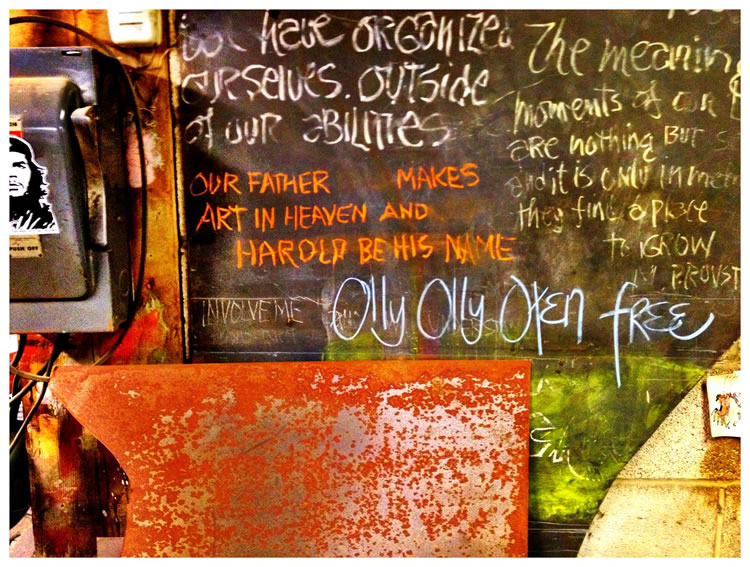 have organized
ourselves. outside
of our abilities
OUR FATHER MAKES
ART IN HEAVEN AND
HAROLD BE HIS NAME
The meanin
moments of our
are nothing But
and it is only in mem
they find a place
to GROW
M. PROUST
INVOLVE ME
Olly Olly Oxen free
PUSH OFF